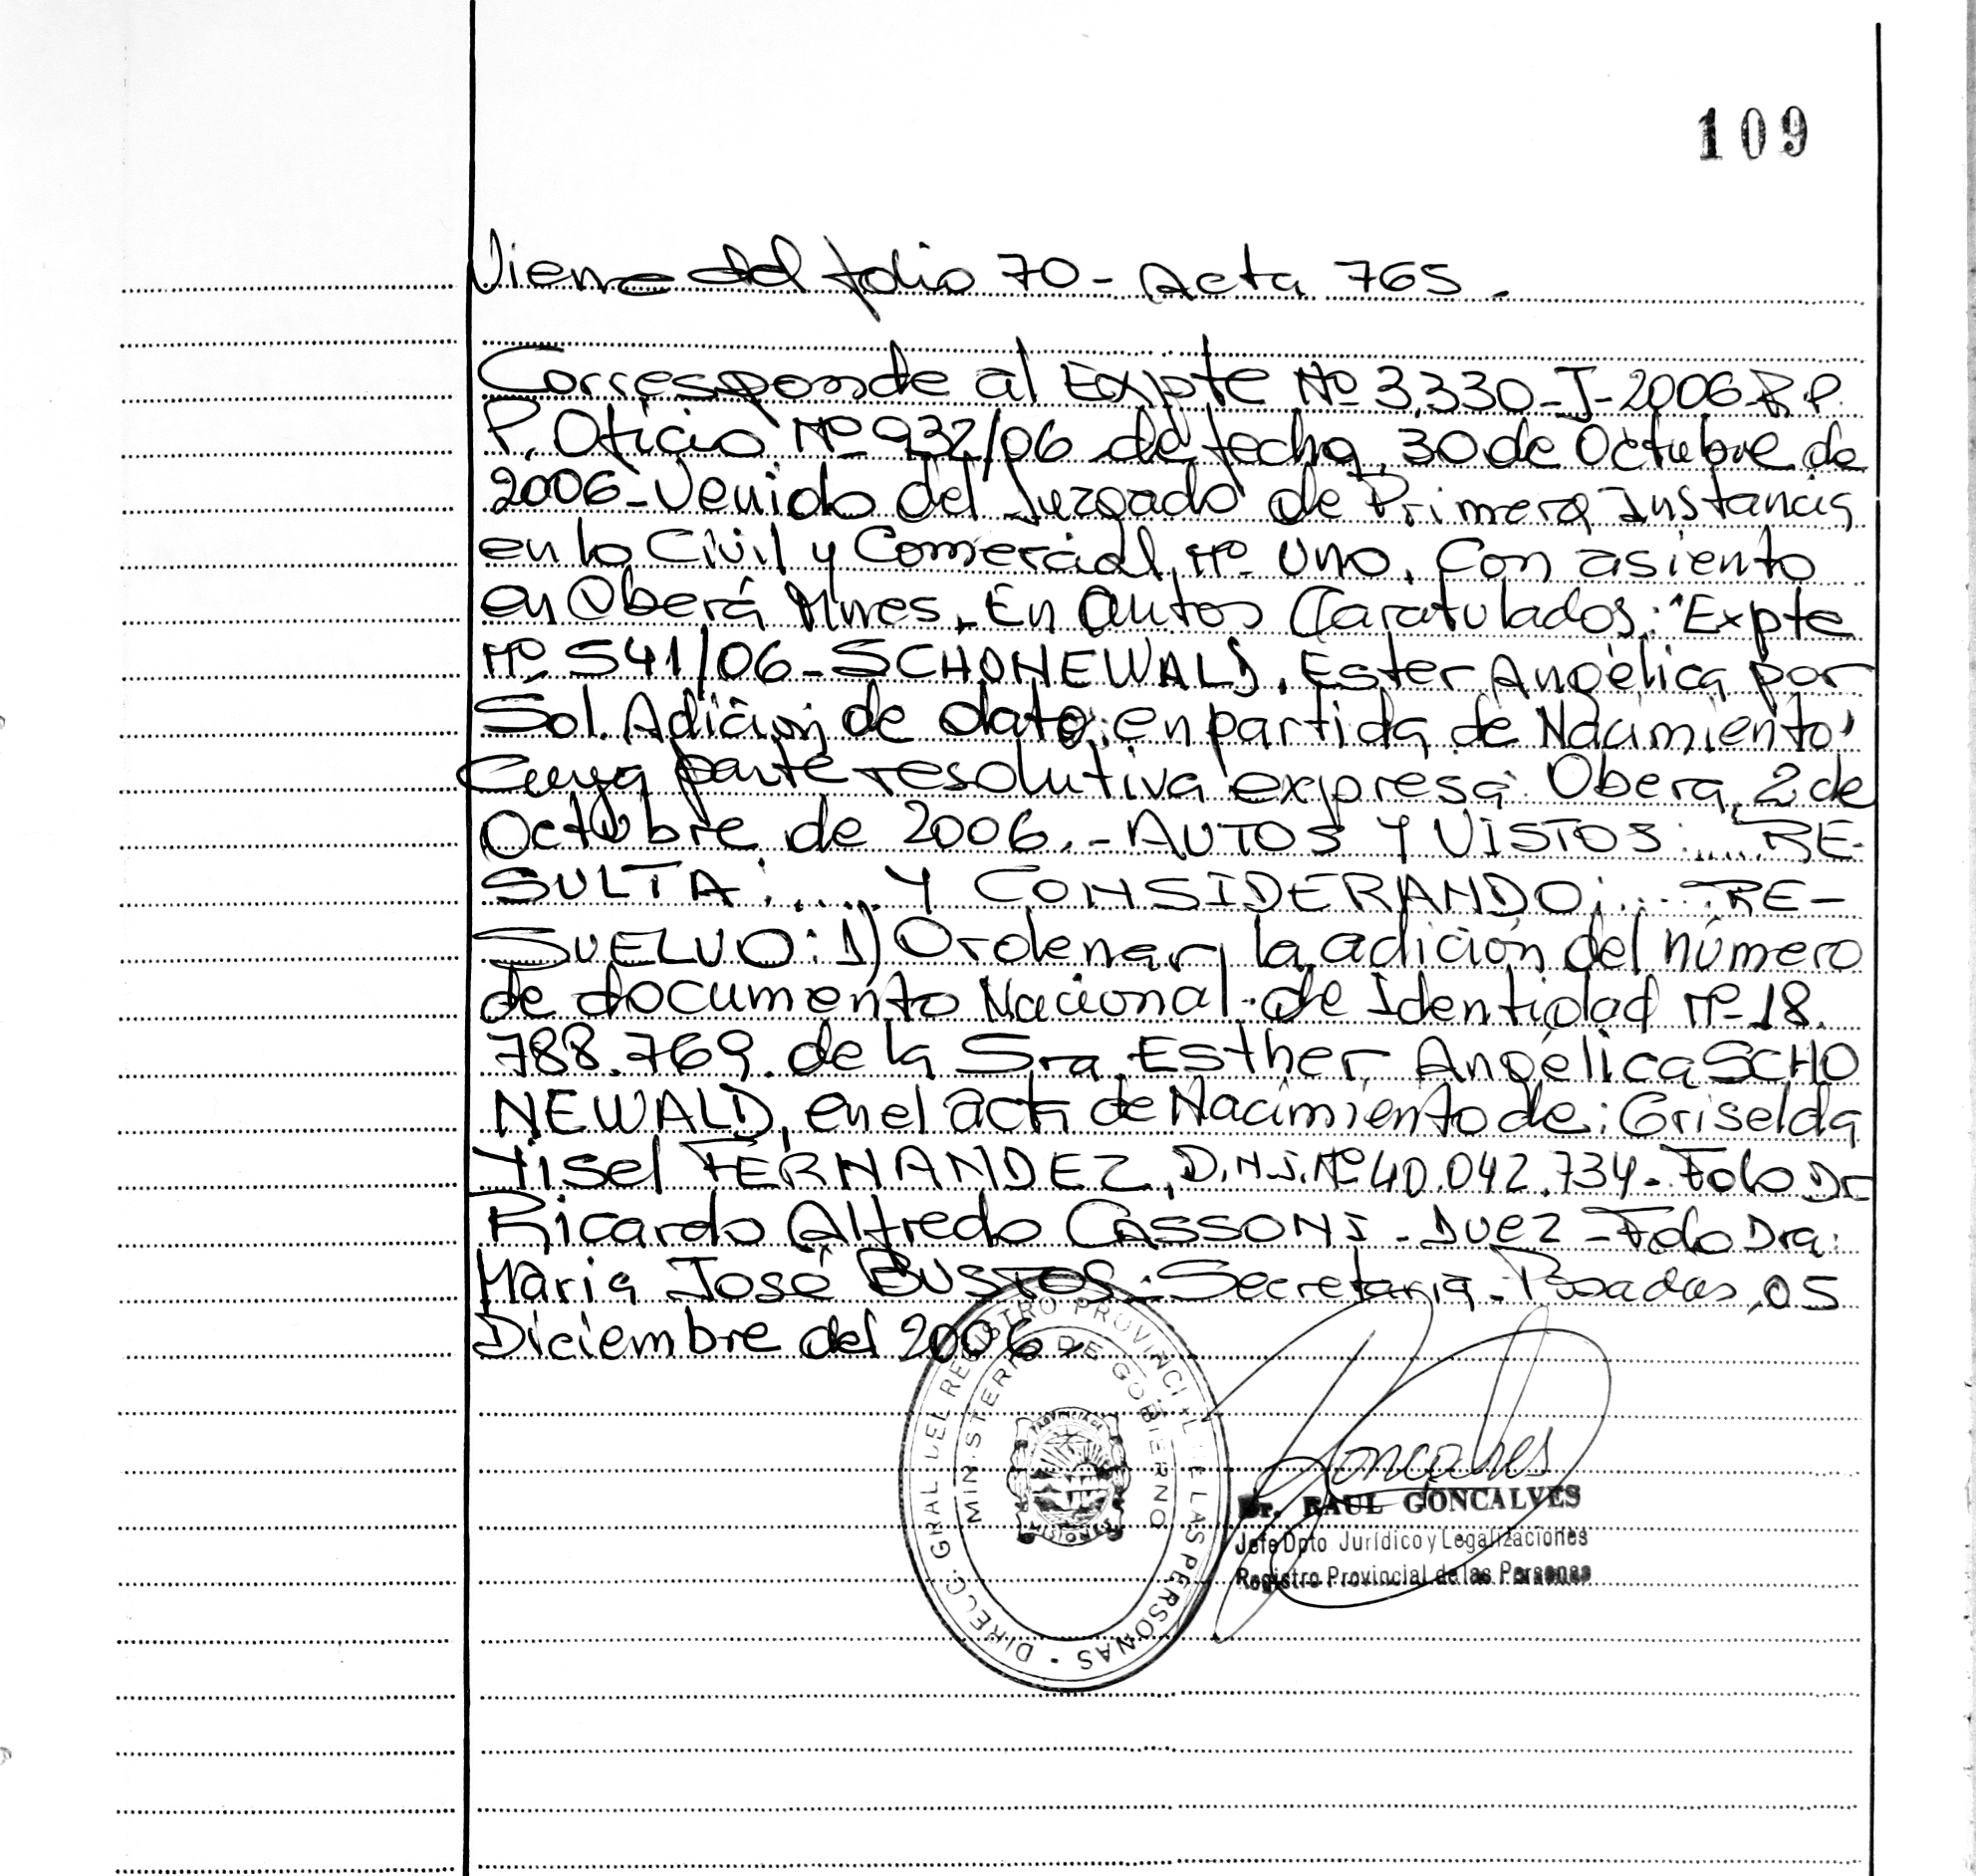 109
Viene del folio 70 - Acta 765.
Corresponde al Expte Nº 3.330-J-2006-R.P.
P. Oficio Nº 932/06 de fecha 30 de Octubre de
2006-Venido del Juzgado de Primera Instancia
en lo Civil y Comercial Nº Uno. Con asiento
en Oberá Mnes. En Autos Caratulados: "Expte
Nº 541/06-SCHONEWALD, Ester Angélica por
Sol. Adición de dato en partida de Nacimiento"
Cuya parte resolutiva expresa: Obera, 2 de
Octubre de 2006.- AUTOS Y VISTOS:.... RE-
SULTA:..... Y CONSIDERANDO:.... RE-
SUELVO: 1) Ordenar la adición del número
de documento Nacional de Identidad Nº 18.
788.769. de la Sra. Esther Angélica SCHO
NEWALD, en el acta de Nacimiento de: Griselda
Yisel FERNANDEZ, D.N.I. Nº 40.042.734- Fdo Dr
Ricardo Alfredo CASSONI - Juez - Fdo Dra:
Maria José BUSTOS - Secretaria - Posadas, 05
Diciembre del 2006.
DIRECC. GRAL DEL REGISTRO PROVINCIAL DE LAS PERSONAS
MINISTERIO DE GOBIERNO
PROVINCIA DE
MISIONES
Goncalves
Dr. RAUL GONCALVES
Jefe Dpto Jurídico y Legalizaciones
Registro Provincial de las Personas